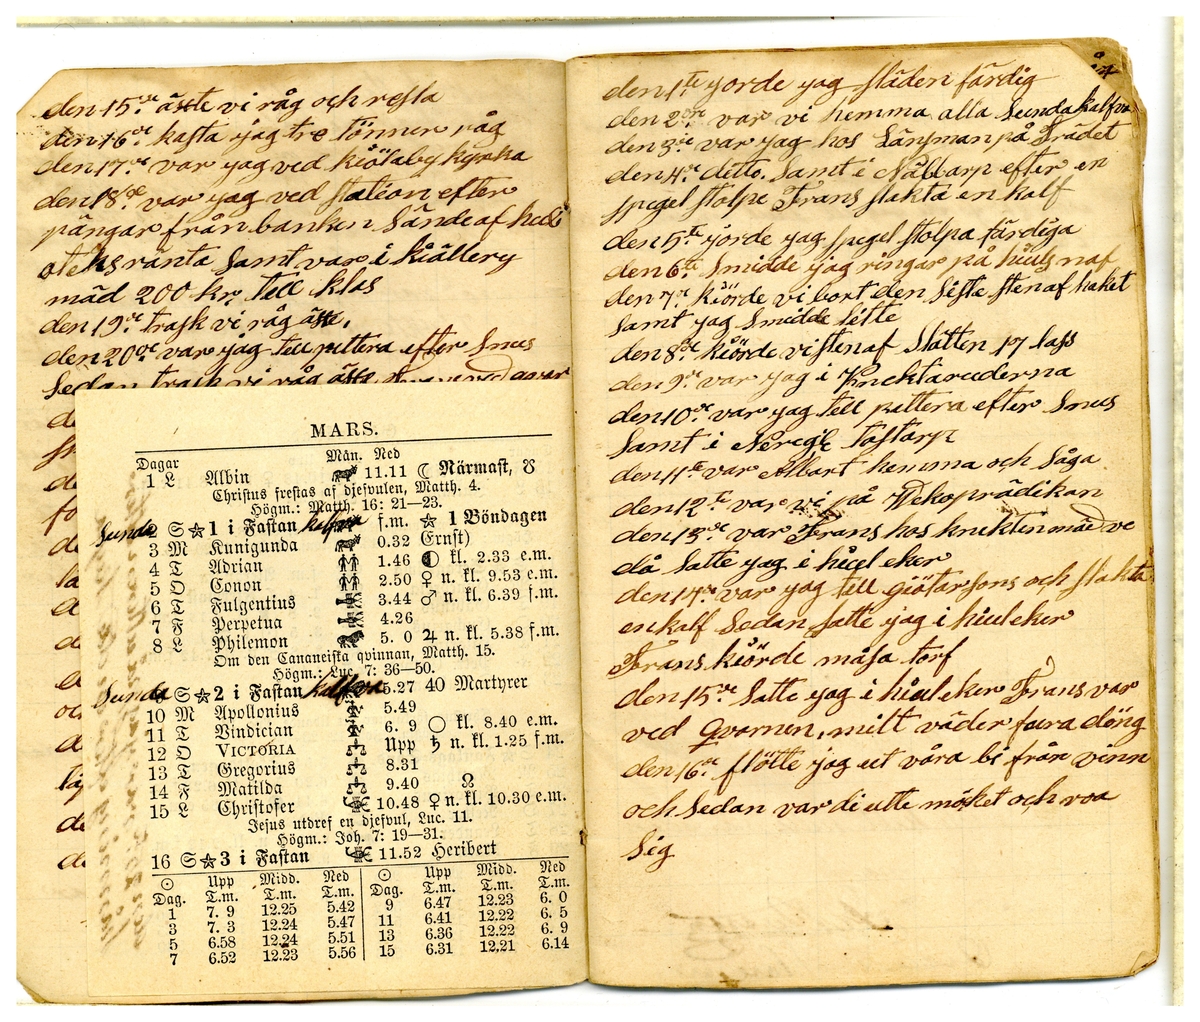 den 15de åste vi råg och resta
den 16de kasta jag tre tönner råg
den 17de var jag ved kiölaby kyrka
den 18de var jag ved station efter
pängar från banken Sände af
ränta Samt var i kiällery
mäd 200 kr. tell klas
den 19de trask vi råg åste.
den 20de var jag tell pittera efter Snus
Sedan trask vi råg åste
MARS.
Dagar Mån. Ned
1 L Albin 11.11 ☾ Närmast, ☋
Christus frestas af djefvulen, Matth. 4.
Högm.: Matth. 16: 21—23.
Sunda 2 S ☆ 1 i Fastan kalfva f.m. ☆ 1 Böndagen
3 M Kunigunda 0.32 Ernst)
4 T Adrian 1.46 ◐ kl. 2.33 e.m.
5 O Conon 2.50 ♀ n. kl. 9.53 e.m.
6 T Fulgentius 3.44 ♂ n. kl. 6.39 f.m.
7 F Perpetua 4.26
8 L Philemon 5. 0 ♃ n. kl. 5.38 f.m.
Om den Cananeiska qvinnan, Matth. 15.
Högm.: Luc. 7: 36—50.
Sunda 9 S ☆ 2 i Fastan kalfva 5.27 40 Martyrer
10 M Apollonius 5.49
11 T Vindician 6. 9 ○ kl. 8.40 e.m.
12 O VICTORIA Upp ♄ n. kl. 1.25 f.m.
13 T Gregorius 8.31
14 F Matilda 9.40 ☊
15 L Christofer 10.48 ♀ n. kl. 10.30 e.m.
Jesus utdref en djefvul, Luc. 11.
Högm.: Joh. 7: 19—31.
16 S ☆ 3 i Fastan 11.52 Heribert
☉ Upp Midd. Ned ☉ Upp Midd. Ned
Dag. T.m. T.m. T.m. Dag. T.m. T.m. T.m.
1 7. 9 12.25 5.42 9 6.47 12.23 6. 0
3 7. 3 12.24 5.47 11 6.41 12.22 6. 5
5 6.58 12.24 5.51 13 6.36 12.22 6. 9
7 6.52 12.23 5.56 15 6.31 12.21 6.14
den 1te jorde jag släden färdig
den 2dre var vi hemma alla Sunda kalfva
den 3de var jag hos Länsman på Trädet
den 4de ditto. Samt i Nålbarp efter en
spegel stolpe Frans slakta en kalf
den 5te jorde jag spegel stolpa färdiga
den 6te Smidde jag ringar på hiuls naf
den 7de kiörde vi bort den Siste sten af haket
Samt jag Smidde litte
den 8de kiörde vi sten af Slätten 17 lass
den 9de var jag i Knektaruderna
den 10de var jag tell pittera efter Snus
Samt i Täftarp
den 11te var Albart hemma och Såga
den 12te var vi på Wekoprädikan
den 13de var Frans hos knekten mäd ve
då Satte jag i hiul eker
den 14de var jag tell giötarsons och slakta
en kalf Sedan Satte jag i hiul eker
Frans kiörde måsa torf
den 15de Satte jag i hiul eker Frans var
ved Qvarnen, mitt väder fara döng
den 16de flötte jag ut våra bi från vinn
och Sedan var di utte möket och roa
Sig